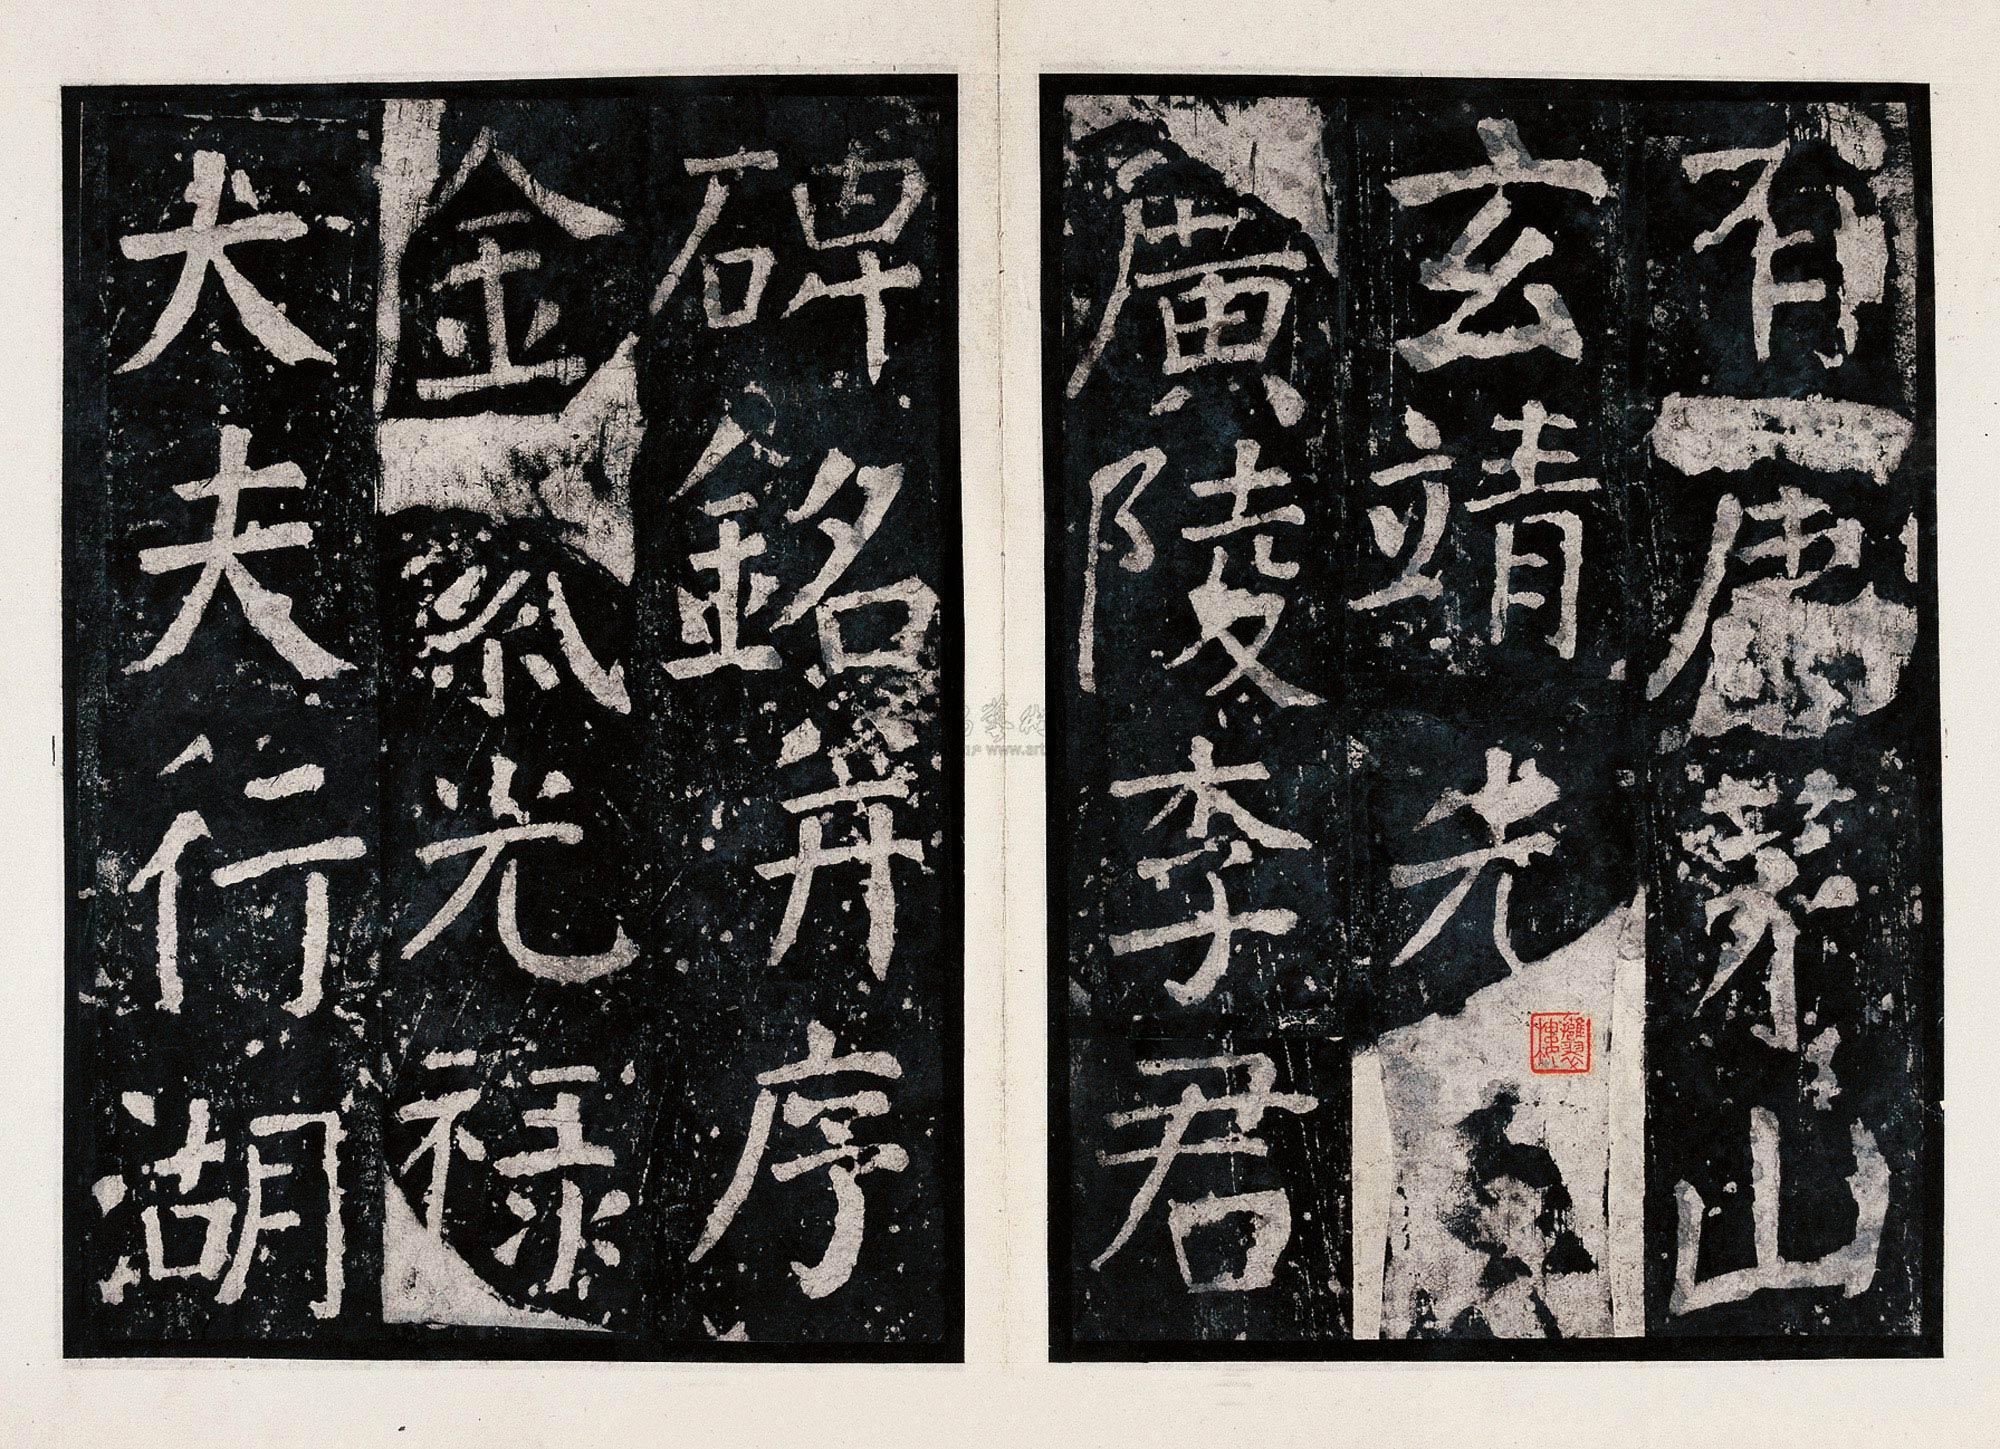 有唐茅山
玄靖先
廣陵李君
碑銘并序
金紫光祿
大夫行湖